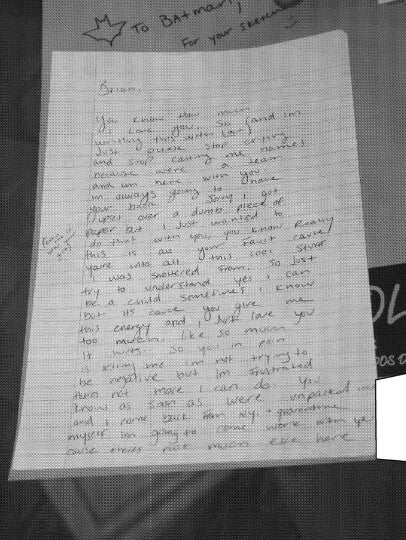 To Batman,
For your sketches
Brian,
You know how much
I care you. So (and im
writing this with love)
Just please stop crying
and stop calling me names
because we're a team
and im here with you
im always going to have
your back. Sorry I got
upset over a dumb piece of
paper but I just wanted to
do that with you, you know Really
this is all your fault cause
youre into all this cool stuff
I was sheltered from. So just
try to understand yes I can
be a child sometimes I know
but its cause you give me
this energy and I just love you
too much. like so much
it hurts. So you in pain
is killing me im not trying to
be negative but im frustrated
theres not more I can do. You
know as soon as were unpacked
and I come back from NY + quarantine
myself im going to come work with you
cause theres not much else here
OL